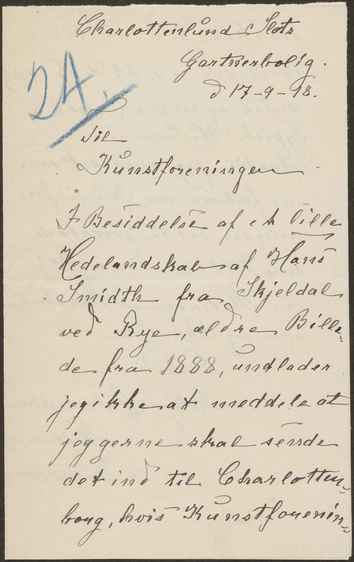 Charlottenlund Slots
Gartnerbolig.
d 17-9-98.
24.
Til
Kunstforeningen
I Besiddelse af et lille
Hedelandskab af Hans
Smidth fra Skjeldal
ved Rye, ældre Bille-
de fra 1888, undlader
jeg ikke at meddele at
jeg gerne skal sende
det ind til Charlotten-
borg, hvis Kunstforenin-